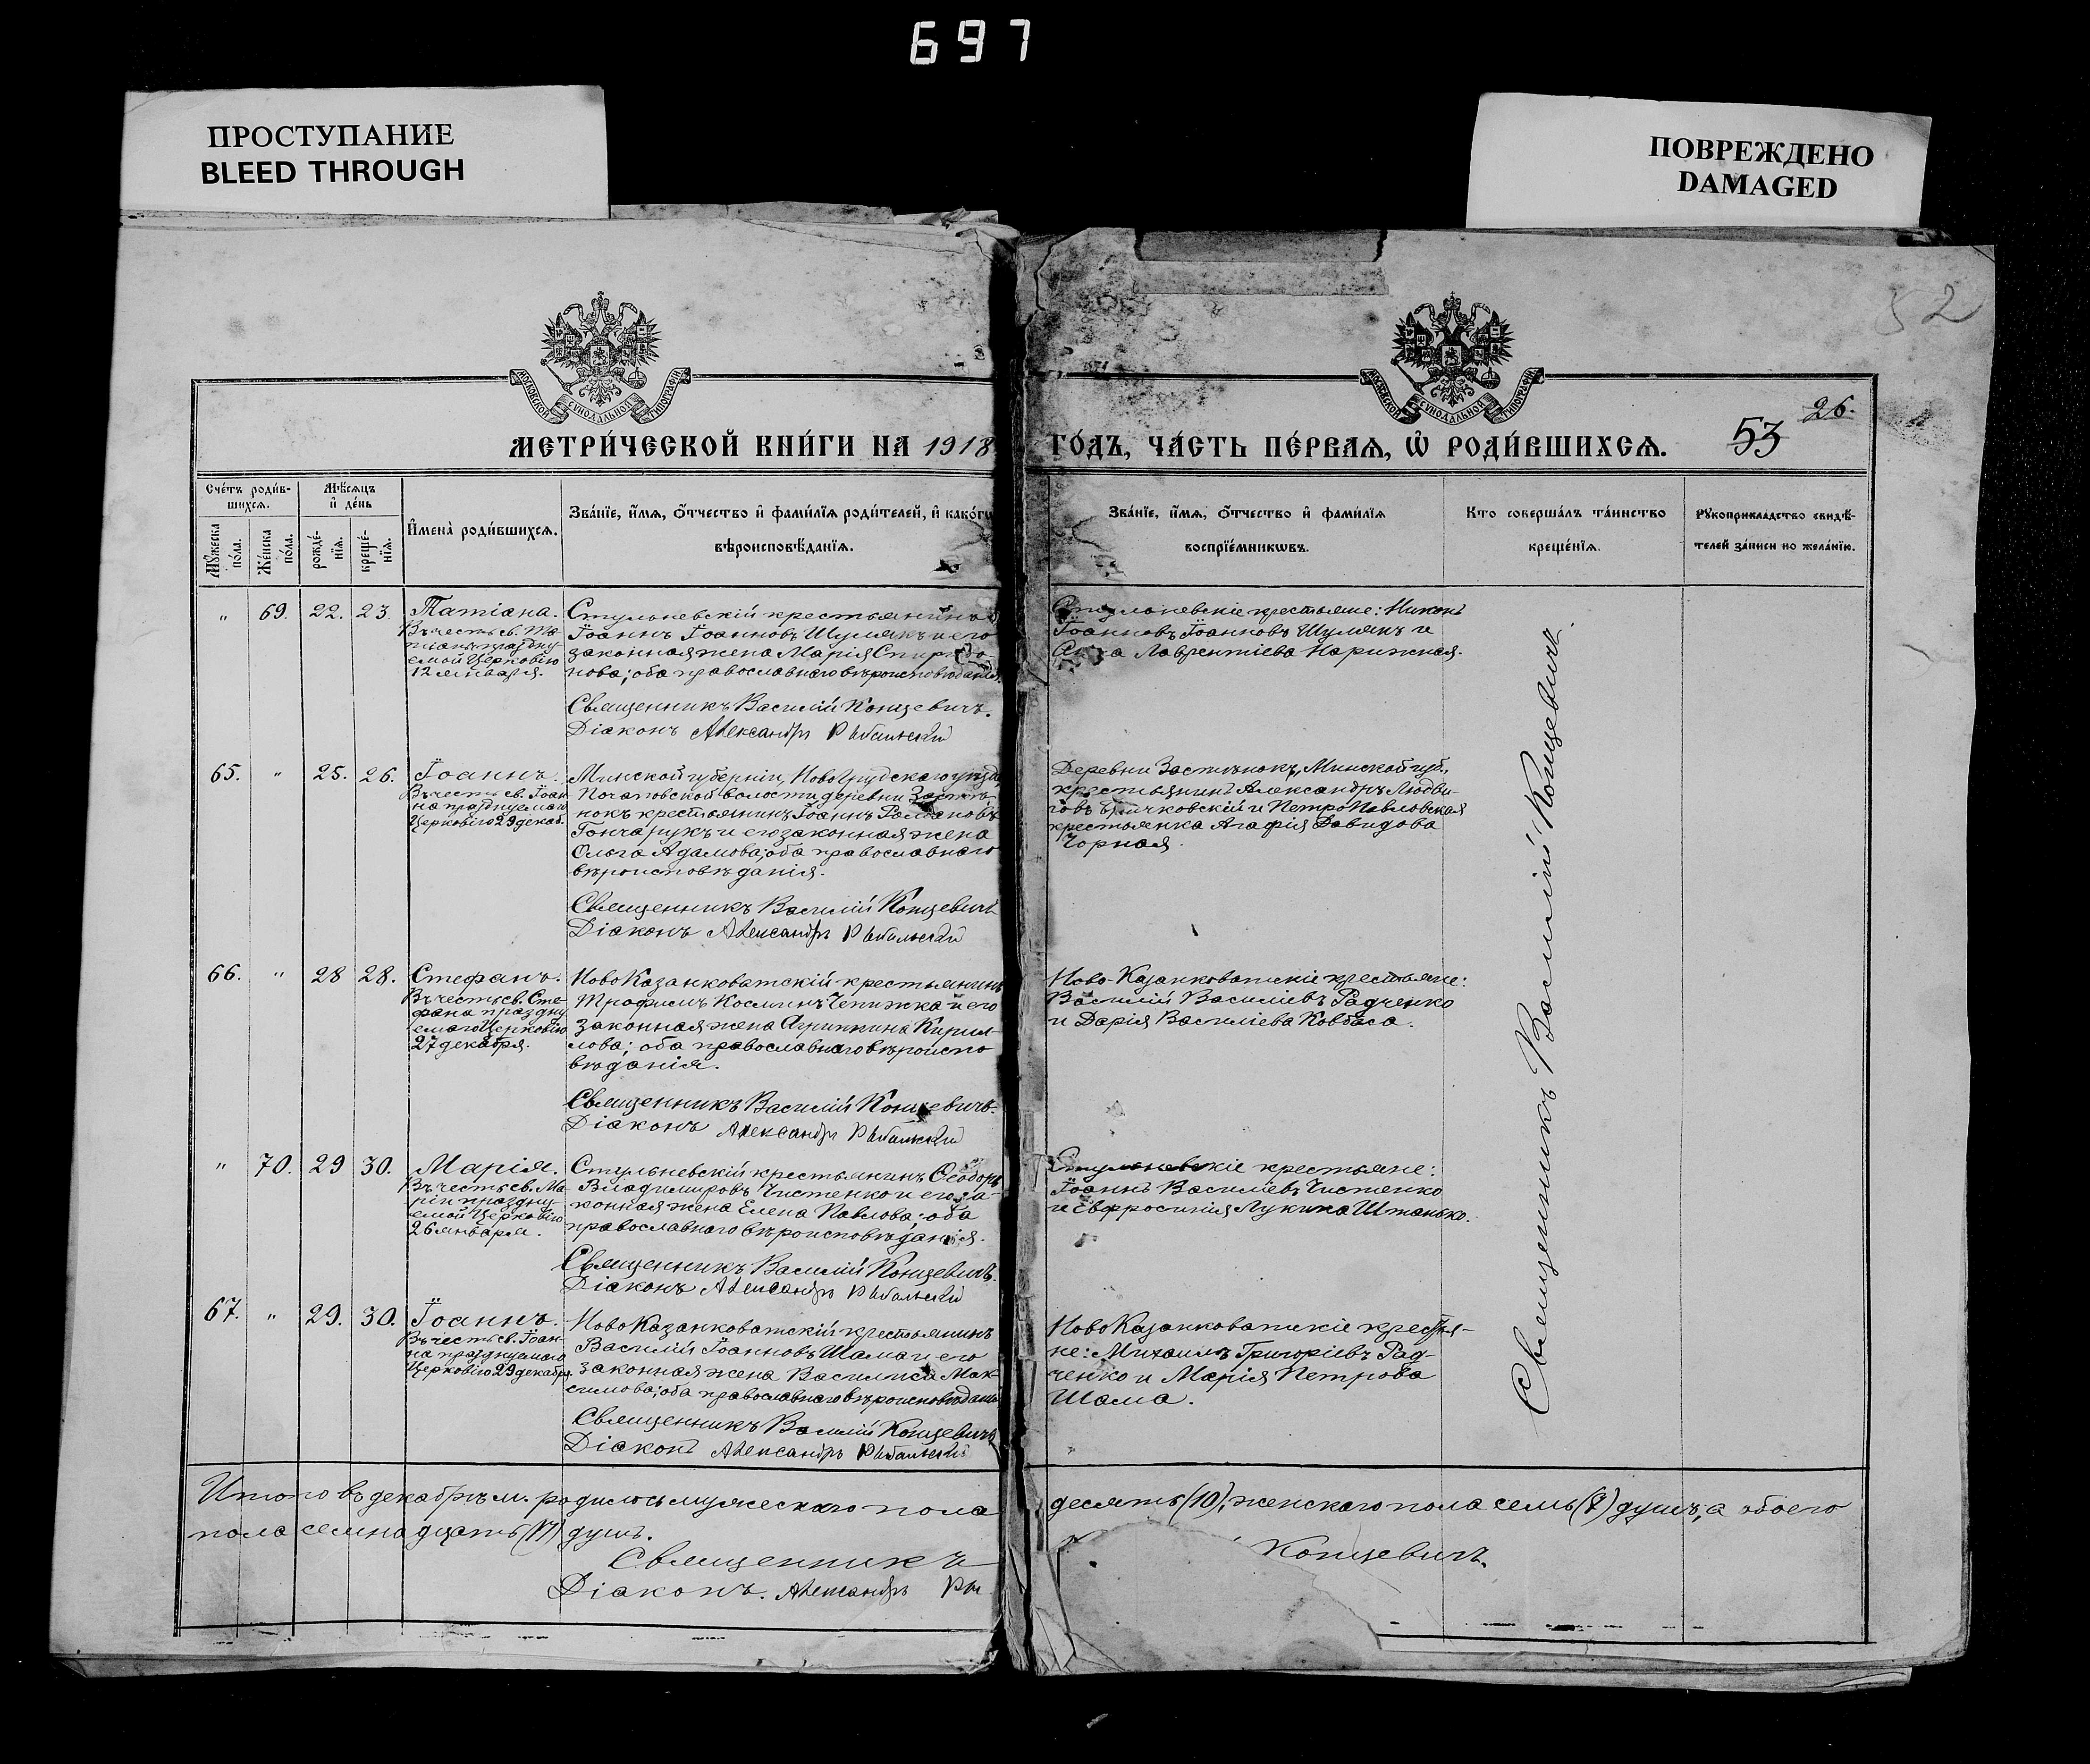 697
ПРОСТУПАНИЕ
BLEED THROUGH
ПОВРЕЖДЕНО
DAMAGED
52
МОСКОВСКОЙ СѴНОДАЛЬНОЙ ТИПОГРАФІИ
МОСКОВСКОЙ СѴНОДАЛЬНОЙ ТИПОГРАФІИ
26.
МЕТРИ́ЧЕСКОЙ КНИ́ГИ НА 1918
ГО́ДЪ, ЧА́СТЬ ПЕ́РВАѦ, Ѡ РОДИ́ВШИХСѦ.
53
Сче́тъ роди́в-
шихсѧ.
Мꙋ́жеска по́ла.
Же́нска по́ла.
Мѣ́сѧцъ
и҆ де́нь
рожде́-
нїѧ.
креще́-
нїѧ.
И҆мена̀ роди́вшихсѧ.
Зва́нїе, и҆́мѧ, ѻ҆́тчество и҆ фами́лїѧ роди́телей, и҆ како́гѡ
вѣроисповѣ́данїѧ.
Зва́нїе, и҆́мѧ, ѻ҆́тчество и҆ фами́лїѧ
воспрїе́мникѡвъ.
Кто соверша́лъ та́инство
креще́нїѧ.
Рꙋкоприкла́дство свидѣ́-
телей за́писи по жела́нїю.
„ 69. 22. 23. Татіана.
Въ честь св. Та-
тіаны праздну
емой Церковію
12 января.
Стульневскій крестьянинъ
Іоаннъ Іоанновъ Шулякъ и его
законная жена Марія Спиридо
нова; оба православнаго вѣроисповѣданія.
Священникъ Василій Концевичъ.
Діаконъ Александръ Рыбальскій
Стульневскіе крестьяне: Никонъ
Іоанновъ Іоанновъ Шулякъ и
Анна Лаврентіева Нарижная.
65. „ 25. 26. Іоаннъ.
Въ честь св. Іоан
на празднуемаго
Церковію 29 декаб.
Минской губерніи, Новогрудскаго уѣзда
Почаповской волости деревни Застѣ-
нокъ крестьянинъ Іоаннъ Романовъ
Гончарукъ и его законная жена
Ольга Адамова; оба православнаго
вѣроисповѣданія.
Священникъ Василій Концевичъ
Діаконъ Александръ Рыбальскій
Деревни Застѣнокъ, Минской губ.,
крестьянинъ Александръ Людви-
говъ и Петропавловская
крестьянка Агафія Давидова
Чорная.
66. „ 28 28. Стефанъ.
Въ честь св. Сте-
фана праздну
емаго Церковію
27 декабря.
НовоКазанковатскій крестьянинъ
Трофимъ Косминъ Чепижка и его
законная жена Агрипкина Кирил-
лова; оба православнаго вѣроиспо
вѣданія.
Священникъ Василій Концевичъ.
Діаконъ Александръ Рыбальскій
Ново-Казанковатскіе крестьяне:
Василій Василіевъ Радченко
и Дарія Василіева Ковбаса.
„ 70. 29 30. Марія.
Въ честь св. Ма-
ріи праздну
емой Церковію
26 января.
Стульневскій крестьянинъ Ѳеодоръ
Владимировъ Чистенко и его за-
конная жена Елена Павлова; оба
православнаго вѣроисповѣданія.
Священникъ Василій Концевичъ.
Діаконъ Александръ Рыбальскій
Стульневскіе крестьяне:
Іоаннъ Василіевъ Чистенко
и Евфросинія Лукина Штанько.
67. „ 29. 30. Іоаннъ.
Въ честь св. Іоан-
на празднуемаго
Церковію 29 декабря.
НовоКазанковатскій крестьянинъ
Василій Іоанновъ Шама и его
законная жена Василиса Мак-
симова; оба православнаго вѣроисповѣданія
Священникъ Василій Концевичъ
Діаконъ Александръ Рыбальскій
НовоКазанковатскіе крестья-
не: Михаилъ Григоріевъ Рад-
ченко и Марія Петрова
Шама.
Священникъ Василій Концевичъ.
Итого въ декабрѣ м. родилось мужескаго пола
десять (10), женскаго пола семь (7) душъ, а обоего
пола семнадцать (17) душъ.
Священникъ
Концевичъ.
Діаконъ. Александръ Ры